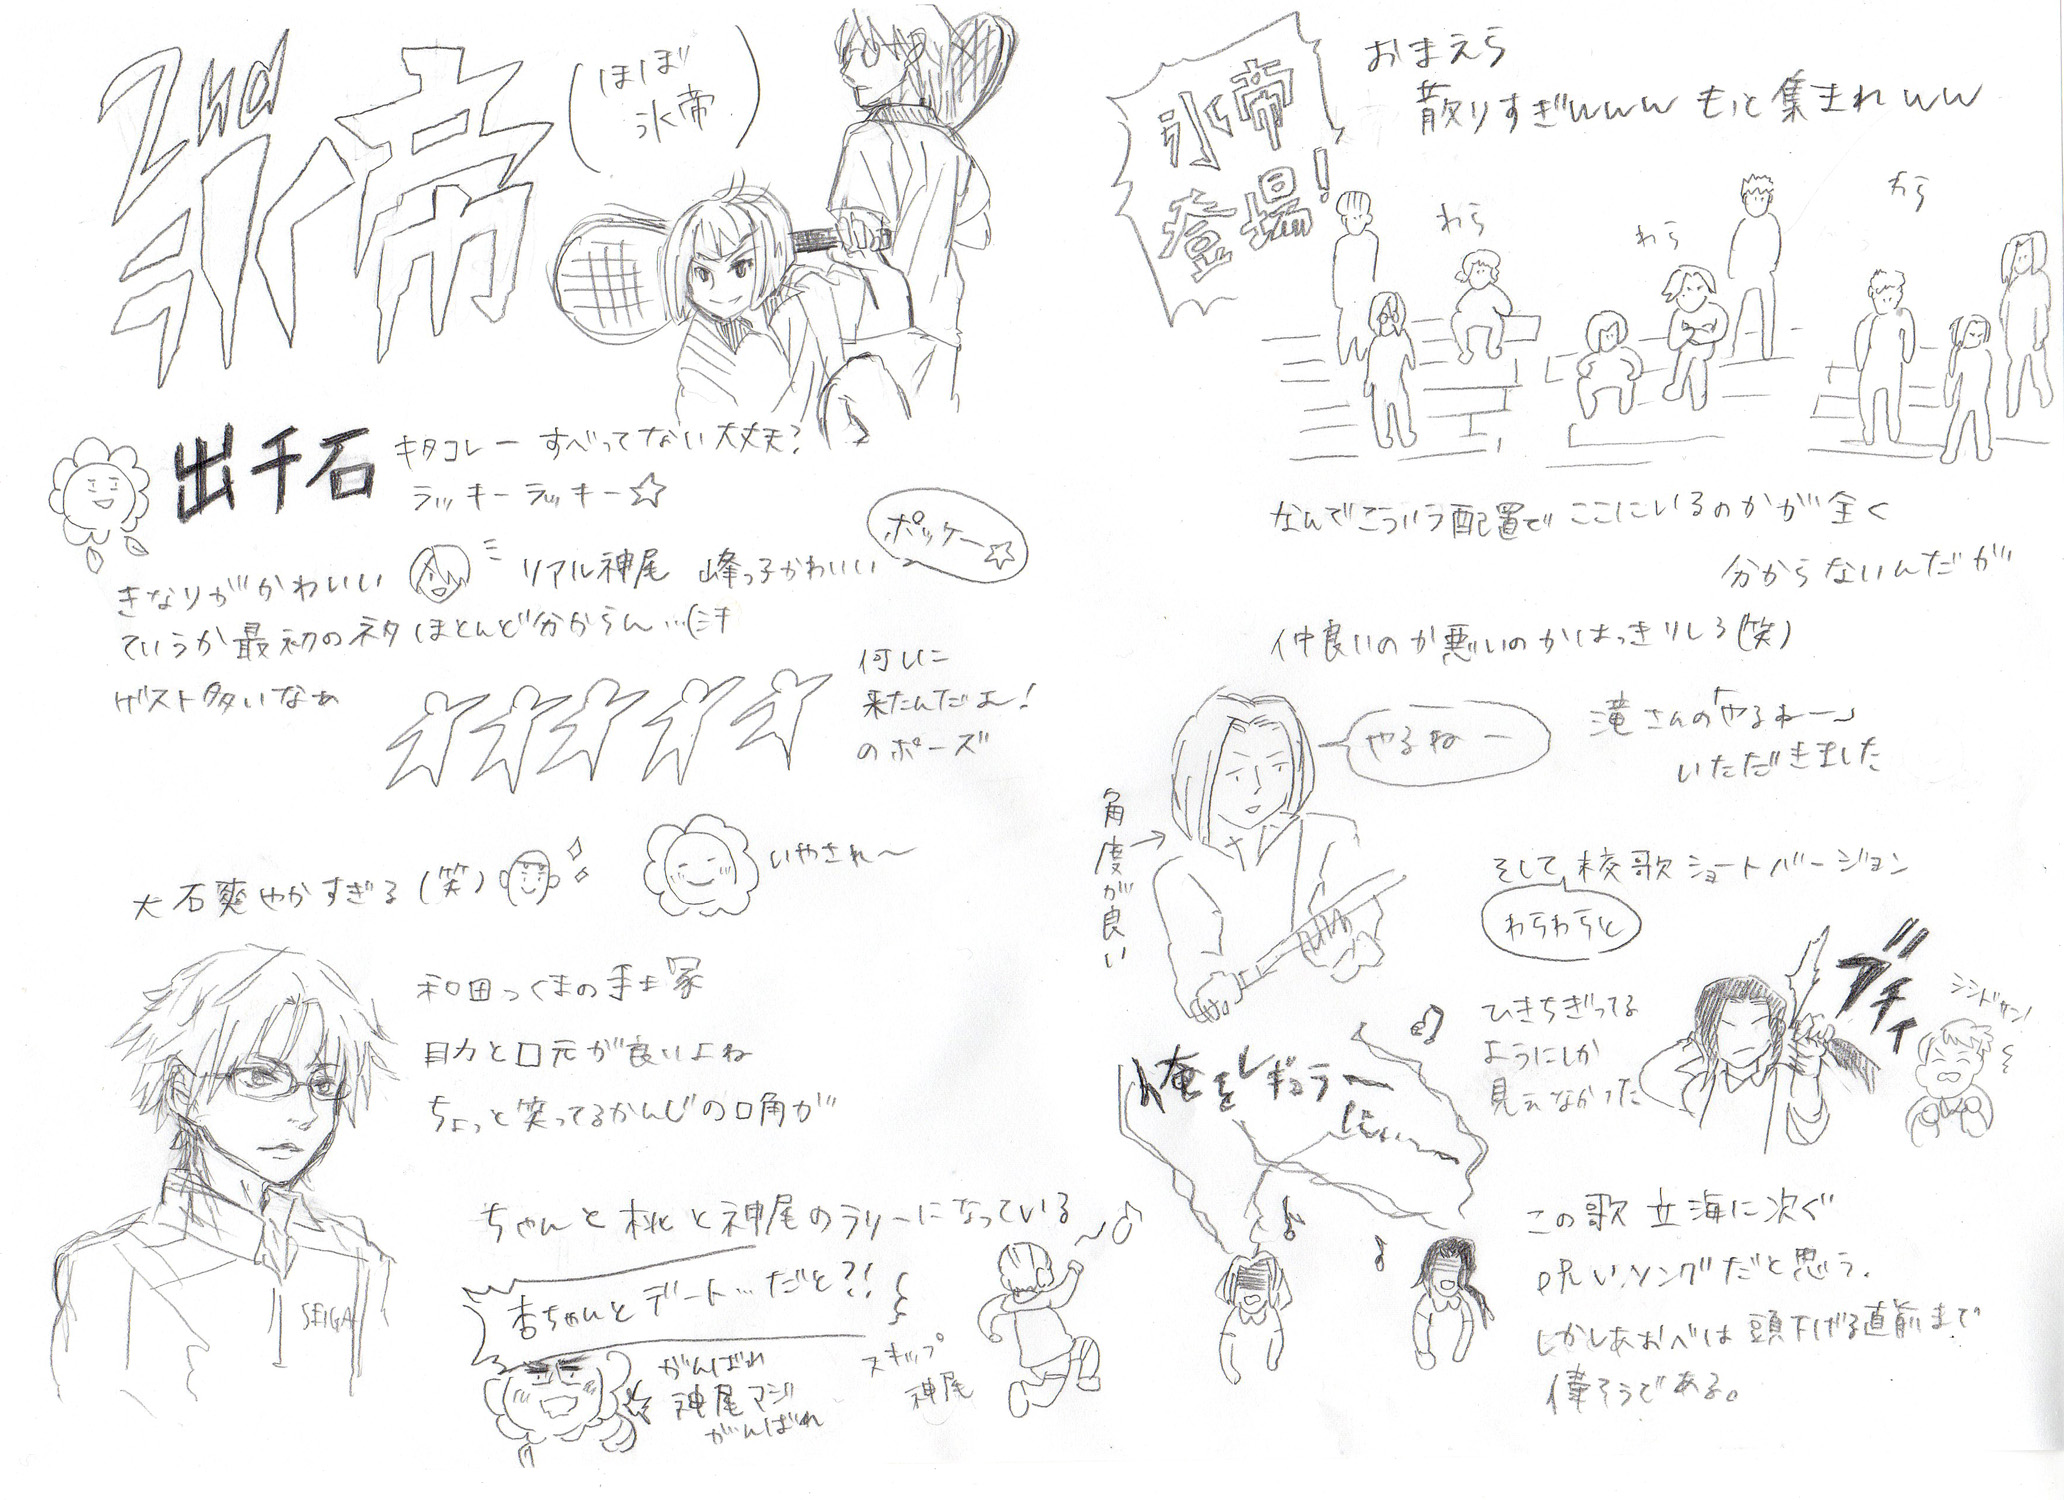 2nd
氷帝
(ほぼ
氷帝)
出千石
キタコレー すべってない大丈夫?
ラッキーラッキー☆
きなりがかわいい
リアル神尾 峰っ子かわいい
ポッケー☆
ていうか最初のネタほとんど分からん…
ゲスト多いなぁ
何しに
来たんだよー!
のポーズ
大石爽やかすぎる(笑)
いやされ〜
和田っくまの手塚
目力と口元が良いよね
ちょっと笑ってるかんじの口角が
SEIGA
ちゃんと桃と神尾のラリーになっている
杏ちゃんとデート…だと?!
がんばれ
神尾マジ
がんばれ
スキップ
神尾
氷帝
登場!
おまえら
散りすぎwww もっと集まれww
わら
わら
わら
なんでこういう配置でここにいるのかが全く
分からないんだが
仲良いのか悪いのかはっきりしろ(笑)
やるねー
滝さんの「やるねー」
いただきました
角度が良い
そして校歌ショートバージョン
わらわらと
ひきちぎってる
ようにしか
見えなかった
ブチィ
シシドサン!
俺をレギュラー
にぃー
この歌 立海に次ぐ
呪いソングだと思う。
しかしあおべは頭下げる直前まで
偉そうである。